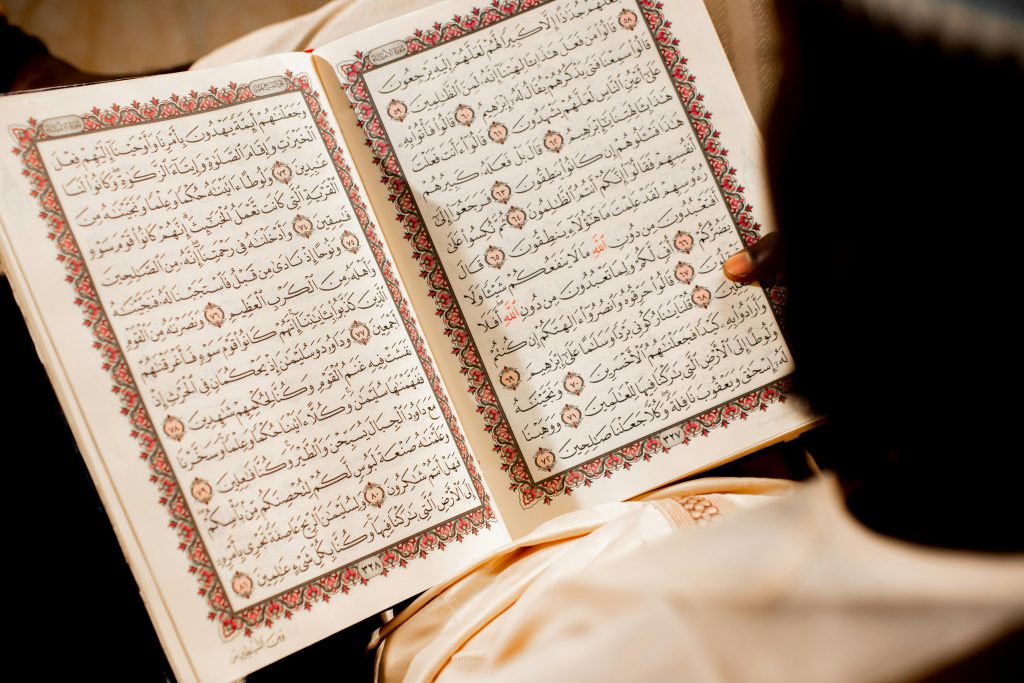 فَجَعَلَهُمْ جُذَاذًا إِلَّا كَبِيرًا لَّهُمْ لَعَلَّهُمْ إِلَيْهِ يَرْجِعُونَ
٥٨ قَالُوا۟ مَن فَعَلَ هَٰذَا بِـَٔالِهَتِنَآ إِنَّهُۥ لَمِنَ ٱلظَّٰلِمِينَ ٥٩
قَالُوا۟ سَمِعْنَا فَتًى يَذْكُرُهُمْ يُقَالُ لَهُۥٓ إِبْرَٰهِيمُ ٦٠ قَالُوا۟ فَأْتُوا۟ بِهِۦ
عَلَىٰٓ أَعْيُنِ ٱلنَّاسِ لَعَلَّهُمْ يَشْهَدُونَ ٦١ قَالُوٓا۟ ءَأَنتَ فَعَلْتَ
هَٰذَا بِـَٔالِهَتِنَا يَٰٓإِبْرَٰهِيمُ ٦٢ قَالَ بَلْ فَعَلَهُۥ كَبِيرُهُمْ
هَٰذَا فَسْـَٔلُوهُمْ إِن كَانُوا۟ يَنطِقُونَ ٦٣ فَرَجَعُوٓا۟ إِلَىٰٓ
أَنفُسِهِمْ فَقَالُوٓا۟ إِنَّكُمْ أَنتُمُ ٱلظَّٰلِمُونَ ٦٤ ثُمَّ نُكِسُوا۟ عَلَىٰ
رُءُوسِهِمْ لَقَدْ عَلِمْتَ مَا هَٰٓؤُلَآءِ يَنطِقُونَ ٦٥ قَالَ
أَفَتَعْبُدُونَ مِن دُونِ ٱللَّهِ مَا لَا يَنفَعُكُمْ شَيْـًٔا وَلَا
يَضُرُّكُمْ ٦٦ أُفٍّ لَّكُمْ وَلِمَا تَعْبُدُونَ مِن دُونِ ٱللَّهِ أَفَلَا
٦٧ قَالُوا۟ حَرِّقُوهُ وَٱنصُرُوٓا۟ ءَالِهَتَكُمْ إِن كُنتُمْ
٦٨ قُلْنَا يَٰنَارُ كُونِى بَرْدًا وَسَلَٰمًا عَلَىٰٓ إِبْرَٰهِيمَ ٦٩
وَأَرَادُوا۟ بِهِۦ كَيْدًا فَجَعَلْنَٰهُمُ ٱلْأَخْسَرِينَ ٧٠ وَنَجَّيْنَٰهُ
وَلُوطًا إِلَى ٱلْأَرْضِ ٱلَّتِى بَٰرَكْنَا فِيهَا لِلْعَٰلَمِينَ ٧١ وَوَهَبْنَا
لَهُۥٓ إِسْحَٰقَ وَيَعْقُوبَ نَافِلَةً ۖ وَكُلًّا جَعَلْنَا صَٰلِحِينَ ٧٢
٣٢٧
وَجَعَلْنَٰهُمْ أَئِمَّةً يَهْدُونَ بِأَمْرِنَا وَأَوْحَيْنَآ إِلَيْهِمْ فِعْلَ
ٱلْخَيْرَٰتِ وَإِقَامَ ٱلصَّلَوٰةِ وَإِيتَآءَ ٱلزَّكَوٰةِ ۖ وَكَانُوا۟ لَنَا
عَٰبِدِينَ ٧٣ وَلُوطًا ءَاتَيْنَٰهُ حُكْمًا وَعِلْمًا وَنَجَّيْنَٰهُ مِنَ
ٱلْقَرْيَةِ ٱلَّتِى كَانَت تَّعْمَلُ ٱلْخَبَٰٓئِثَ ۗ إِنَّهُمْ كَانُوا۟ قَوْمَ سَوْءٍ
فَٰسِقِينَ ٧٤ وَأَدْخَلْنَٰهُ فِى رَحْمَتِنَآ ۖ إِنَّهُۥ مِنَ ٱلصَّٰلِحِينَ
٧٥ وَنُوحًا إِذْ نَادَىٰ مِن قَبْلُ فَٱسْتَجَبْنَا لَهُۥ فَنَجَّيْنَٰهُ
وَأَهْلَهُۥ مِنَ ٱلْكَرْبِ ٱلْعَظِيمِ ٧٦ وَنَصَرْنَٰهُ مِنَ ٱلْقَوْمِ
ٱلَّذِينَ كَذَّبُوا۟ بِـَٔايَٰتِنَآ ۚ إِنَّهُمْ كَانُوا۟ قَوْمَ سَوْءٍ فَأَغْرَقْنَٰهُمْ
أَجْمَعِينَ ٧٧ وَدَاوُۥدَ وَسُلَيْمَٰنَ إِذْ يَحْكُمَانِ فِى ٱلْحَرْثِ إِذْ
نَفَشَتْ فِيهِ غَنَمُ ٱلْقَوْمِ وَكُنَّا لِحُكْمِهِمْ شَٰهِدِينَ ٧٨
فَفَهَّمْنَٰهَا سُلَيْمَٰنَ ۚ وَكُلًّا ءَاتَيْنَا حُكْمًا وَعِلْمًا ۚ وَسَخَّرْنَا
مَعَ دَاوُۥدَ ٱلْجِبَالَ يُسَبِّحْنَ وَٱلطَّيْرَ ۚ وَكُنَّا فَٰعِلِينَ ٧٩
وَعَلَّمْنَٰهُ صَنْعَةَ لَبُوسٍ لَّكُمْ لِتُحْصِنَكُم مِّنۢ بَأْسِكُمْ ۖ
فَهَلْ أَنتُمْ شَٰكِرُونَ ٨٠ وَلِسُلَيْمَٰنَ ٱلرِّيحَ عَاصِفَةً تَجْرِى بِأَمْرِهِۦٓ
إِلَى ٱلْأَرْضِ ٱلَّتِى بَٰرَكْنَا فِيهَا ۚ وَكُنَّا بِكُلِّ شَىْءٍ عَٰلِمِينَ ٨١
٣٢٨
وَمِنَ ٱلشَّيَٰطِينِ